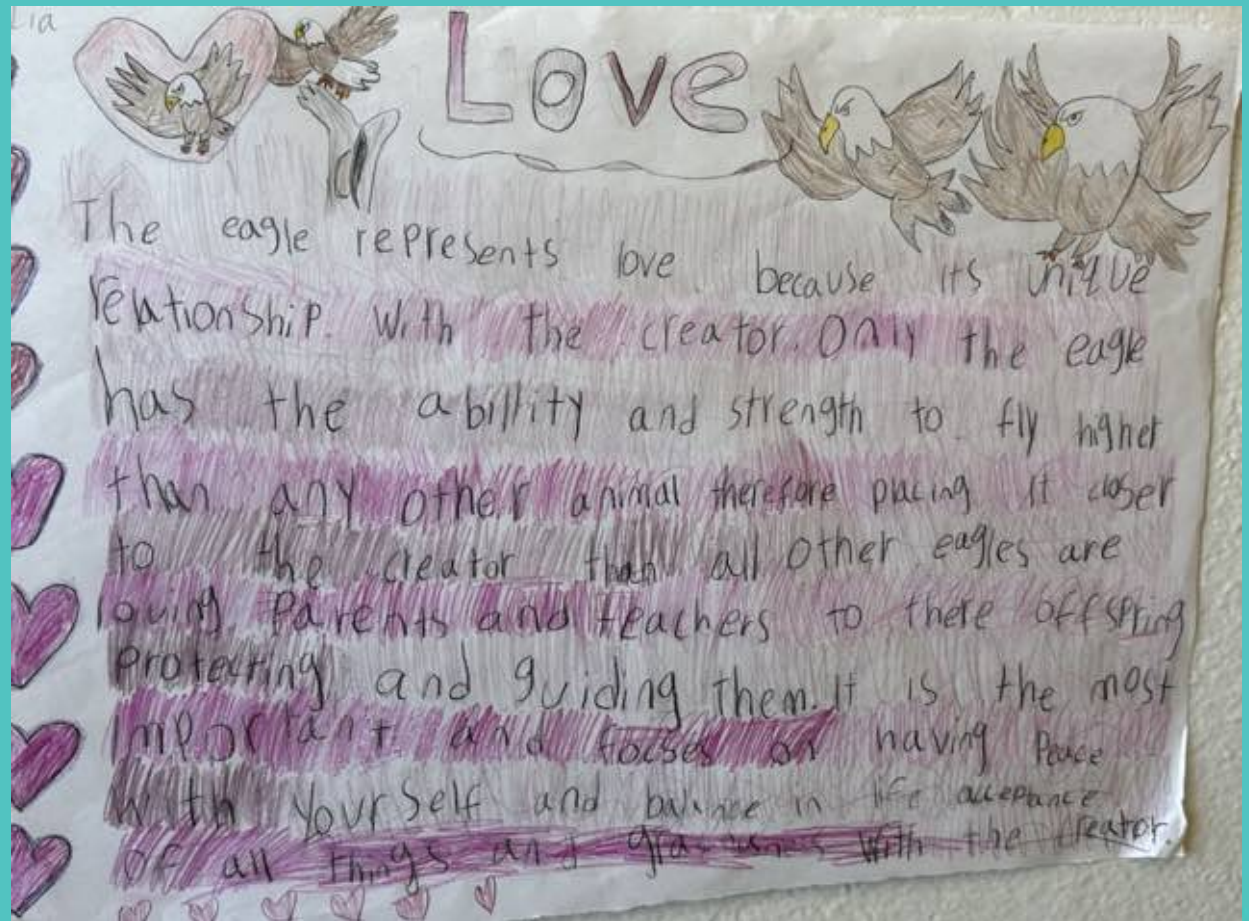 lia
Love
The eagle represents love because its unique
relationship. With the creator. Only the eagle
has the abillity and strength to fly higher
than any other animal therefore placing it closer
to the creator than all other eagles are
loving Parents and teachers to there offspring
Protecting and guiding them. It is the most
important and focses on having Peace
with yourself and balance in life acceptance
of all things and with the Creator.